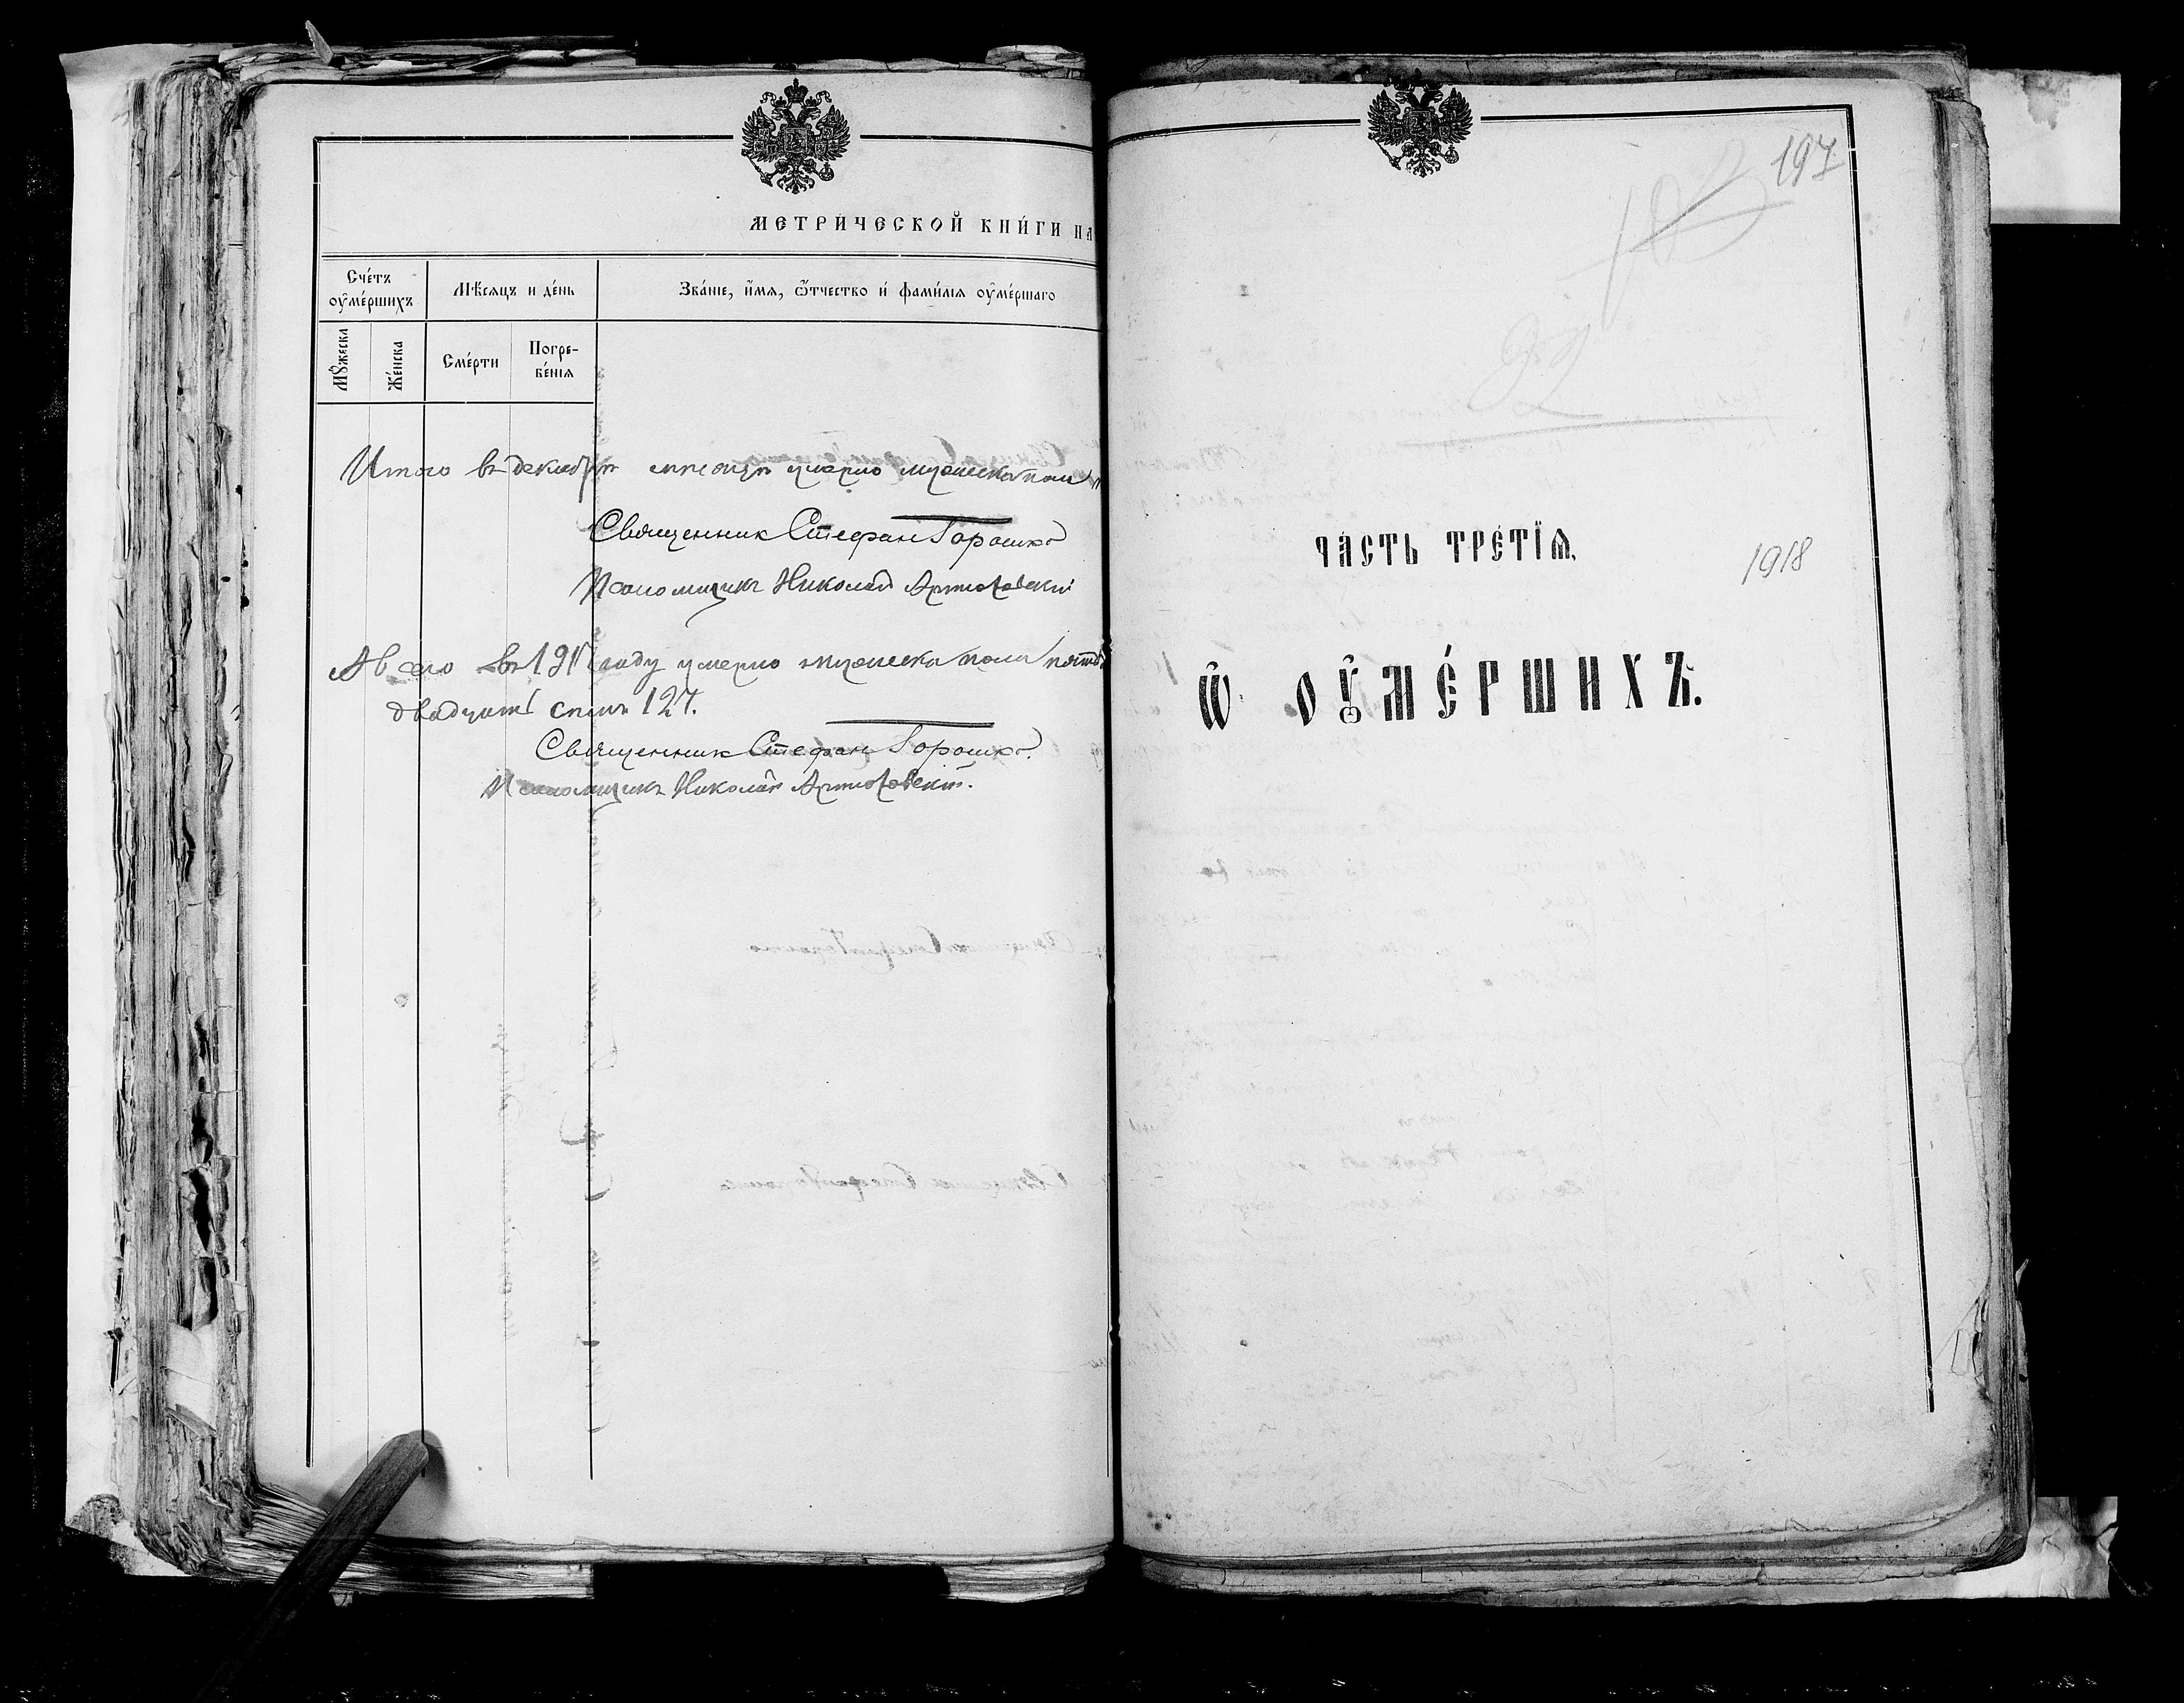 МЕТРИ́ЧЕСКОЙ КНИ́ГИ НА
Сче́тъ
оу҆ме́ршихъ
Мѣ́сяцъ и де́нь
Зва́нїе, и҆́мя, ѻ҆́тчество и҆ фами́лїя оу҆ме́ршаго
Мꙋ́жеска
Же́нска
Сме́рти
Погре-
бе́нїя
Итого въ декабрѣ мѣсяцѣ умерло мужеска пола
Священник Стефан Горошко
Псаломщикъ Николай
А всего въ году умерло мужеска пола
двадцать семь 127.
Священник Стефан Горошко.
Псаломщикъ Николай
197
92
ЧА́СТЬ ТРЕ́ТЇѦ,
1918
Ѡ҆ ОУ҆МЕ́РШИХЪ.